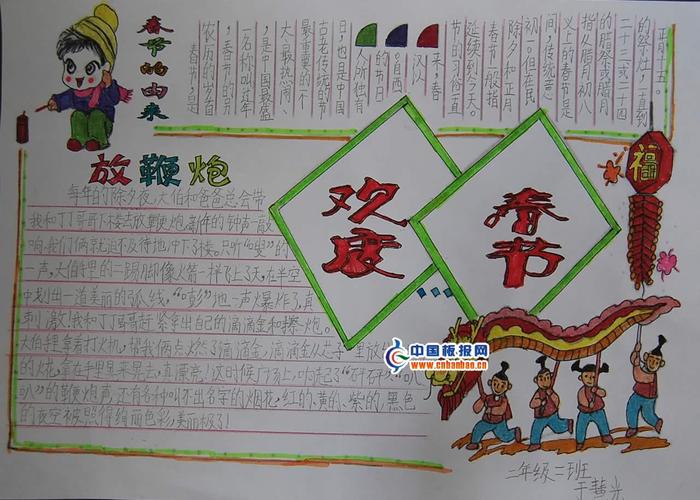 春节的由来
春节，是
农历的岁首
，春节的另
一名称叫过年
，是中国最盛
大、最热闹、
最重要的一个
古老传统节
日，也是中国
人所独有
的节日
。自西
汉以
来，春
节的习俗一直
延续到今天。
春节一般指
除夕和正月
初一。但在民
间，传统意
义上的春节是
指从腊月初八
的腊祭或腊月
二十三或二十四
的祭灶，一直到
正月十五。
福
放鞭炮
每年的除夕夜，大伯和爸爸总会带
我和丁丁哥哥下楼去放鞭炮。新年的钟声一敲
响，我们俩就迫不及待地冲下了楼。只听“嗖”的
一声，大伯手里的二踢脚像火箭一样飞上了天，在半空
中划出一道美丽的弧线，“嘭”地一声爆炸了，真
刺激！我和丁丁哥赶紧拿出自己的滴滴金和擦炮。
大伯手里拿着打火机，帮我俩点燃了滴滴金，滴滴金从芯子里放
的火花，拿在手里
的鞭炮声，还有各种叫不出名字的烟花，红的、黄的、紫的，黑色
的夜空被照得绚丽色彩，美丽极了！
欢度
春节
中国板报网
www.cnbanbao.cn
二年级二班